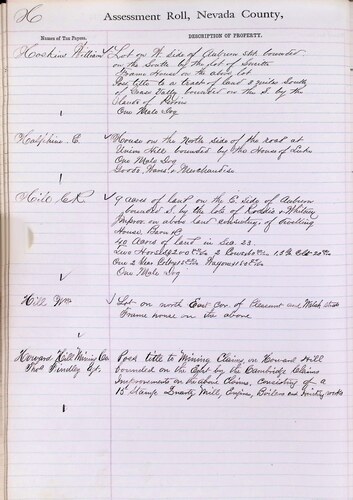 H
Assessment Roll, Nevada County,
Names of Tax Payers.
DESCRIPTION OF PROPERTY.
Hoskins William
Lot on W. side of Auburn Str. bounded
on the South by the lot of Smith
Frame House on the above lot
Poss. title to a tract of land 2 miles South
of Grass Vally bounded on the S by the
lands of
One Male Dog
1
C.
House on the North side of the road at
Union Hill bounded by the House of
One Male Dog
Goods, Wares & Merchandise
1
Hill C R
9 acres of land on the E. side of Auburn
bounded S. by the lots of & Whiting
Improv. on above land consisting of Dwelling
House Barn &c
40 acres of land in Sec. 23.
Two Horses 200 2 Cows
One 2 Year Wagons
One Male Dog
1
Hill Wm
Lot on north East Cor. of Pleasant and Walsh Streets
Frame house on the above
1
Howard Hill Mining Co
Thos Findley Agt.
Poss title to Mining Claims on Howard Hill
bounded on the East by the Cambridge Claims
Improvements on the above Claims, consisting of a
15 Stamp Quartz Mill, Engine, Boilers and Hoisting works
1